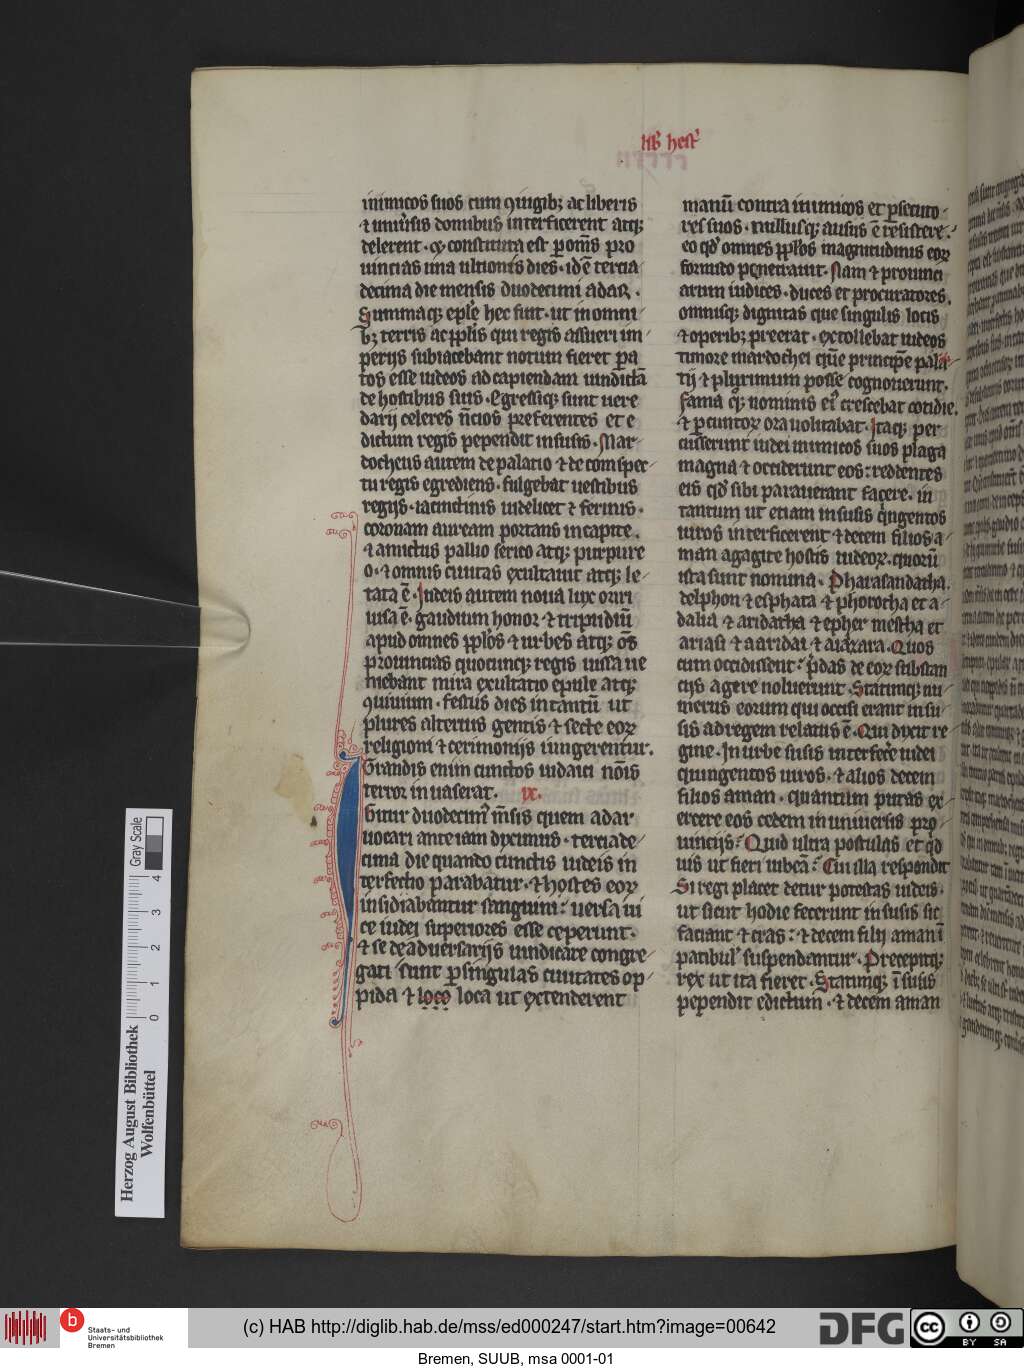 lib hest
inimicos suos cum ꝯiugibꝫ ac liberis
⁊ uniũsis domibus interficerent atqꝫ
delerent · ⁊ constituta est ꝑ om̃s pro
uincias una ultionis dies · id ẽ tercia
decima die mensis duodecimi adar ·
Summaqꝫ eplẽ hec fuit · ut in omni
bꝫ terris ac pplis qui regis assueri im
perijs subiacebant notum fieret ꝑa
tos esse iudeos ad capiendam uindictã
de hostibus suis · Egressiqꝫ sunt uere
darij celeres ñcios preferentes et e
dictum regis pependit in susis · Mar
docheus autem de palatio ⁊ de conspec
tu regis egrediens · fulgebat uestibus
regijs · iacinctinis uidelicet ⁊ ferinis ·
coronam auream portans in capite ·
⁊ amictus pallio serico atqꝫ purpure
o · ⁊ omnis ciuitas exultauit atqꝫ le
tata ẽ · Iudeis autem noua lux oriri
uisa ẽ · gaudium honor ⁊ tripudiũ
apud omnes pplos ⁊ urbes atqꝫ om̃s
prouincias quocunqꝫ regis iussa ue
niebant mira exultatio epule atqꝫ
ꝯuiuium · festus dies in tantũ ut
plures alterius gentis ⁊ secte eoꝝ
religioni ⁊ cerimonijs iungerentur ·
Grandis enim cunctos iudaici nõis
terror inuaserat · ix ·
Igitur duodecimi m̃sis quem adar
uocari ante iam diximus · tercia de
cima die quando cunctis iudeis in
terfectio parabatur · ⁊ hostes eoꝝ
insidiabantur sanguini : uersa ui
ce iudei superiores esse ceperunt ·
⁊ se de aduersarijs uindicare congre
gati sunt ꝑ singulas ciuitates op
pida ⁊ loco loca ut extenderent
manũ contra inimicos et ꝑsecuto
res suos · nullusqꝫ ausus ẽ resistere ·
eo qď omnes pplos magnitudinis eoꝝ
formido penetrauit · Nam ⁊ prouinci
arum iudices · duces et procuratores ·
omnisqꝫ dignitas que singulis locis
⁊ operibꝫ preerat · extollebat iudeos
timore mardochei quẽ principẽ pala
tij ⁊ plurimum posse cognouerunt ·
fama qꝫ nominis ei' crescebat cotidie ·
⁊ ꝑ cunctoꝝ ora uolitabat · Itaqꝫ per
cusserunt iudei inimicos suos plaga
magna ⁊ occiderunt eos : reddentes
eis qď sibi parauerant facere · in
tantum ut etiam in susis qingentos
uiros interficerent ⁊ decem filios a
man agagite hostis iudeoꝝ · quorũ
ista sunt nomina · Pharasandatha ·
delphon ⁊ esphata ⁊ phorocha et a
dalia ⁊ aridatha ⁊ epher mestha et
ariasi ⁊ aaridai ⁊ aiazara · Quos
cum occidissent : p̃das de eoꝝ substan
ciis agere noluerunt · Statimqꝫ nu
merus eorum qui occisi erant in su
sis ad regem relatus ẽ · Qui dixit re
gine · In urbe susis interfecẽ iudei
quingentos uiros · ⁊ alios decem
filios aman · quantum putas ex
ercere eos cedem in uniuersis pro
uincijs : Quid ultra postulas et qď
uis ut fieri iubeã : Cui illa respondit
Si regi placet detur potestas iudeis ·
ut sicut hodie fecerunt in susis sic
faciant ⁊ cras : ⁊ decem filij aman ĩ
patibul' suspendantur · Precepitqꝫ
rex ut ita fieret · Statimqꝫ ĩ susis
pependit edictum · ⁊ decem aman
Gray Scale
0 1 2 3 4
Herzog August Bibliothek
Wolfenbüttel
b
Staats- und
Universitätsbibliothek
Bremen
(c) HAB http://diglib.hab.de/mss/ed000247/start.htm?image=00642
DFG
cc BY SA
Bremen, SUUB, msa 0001-01